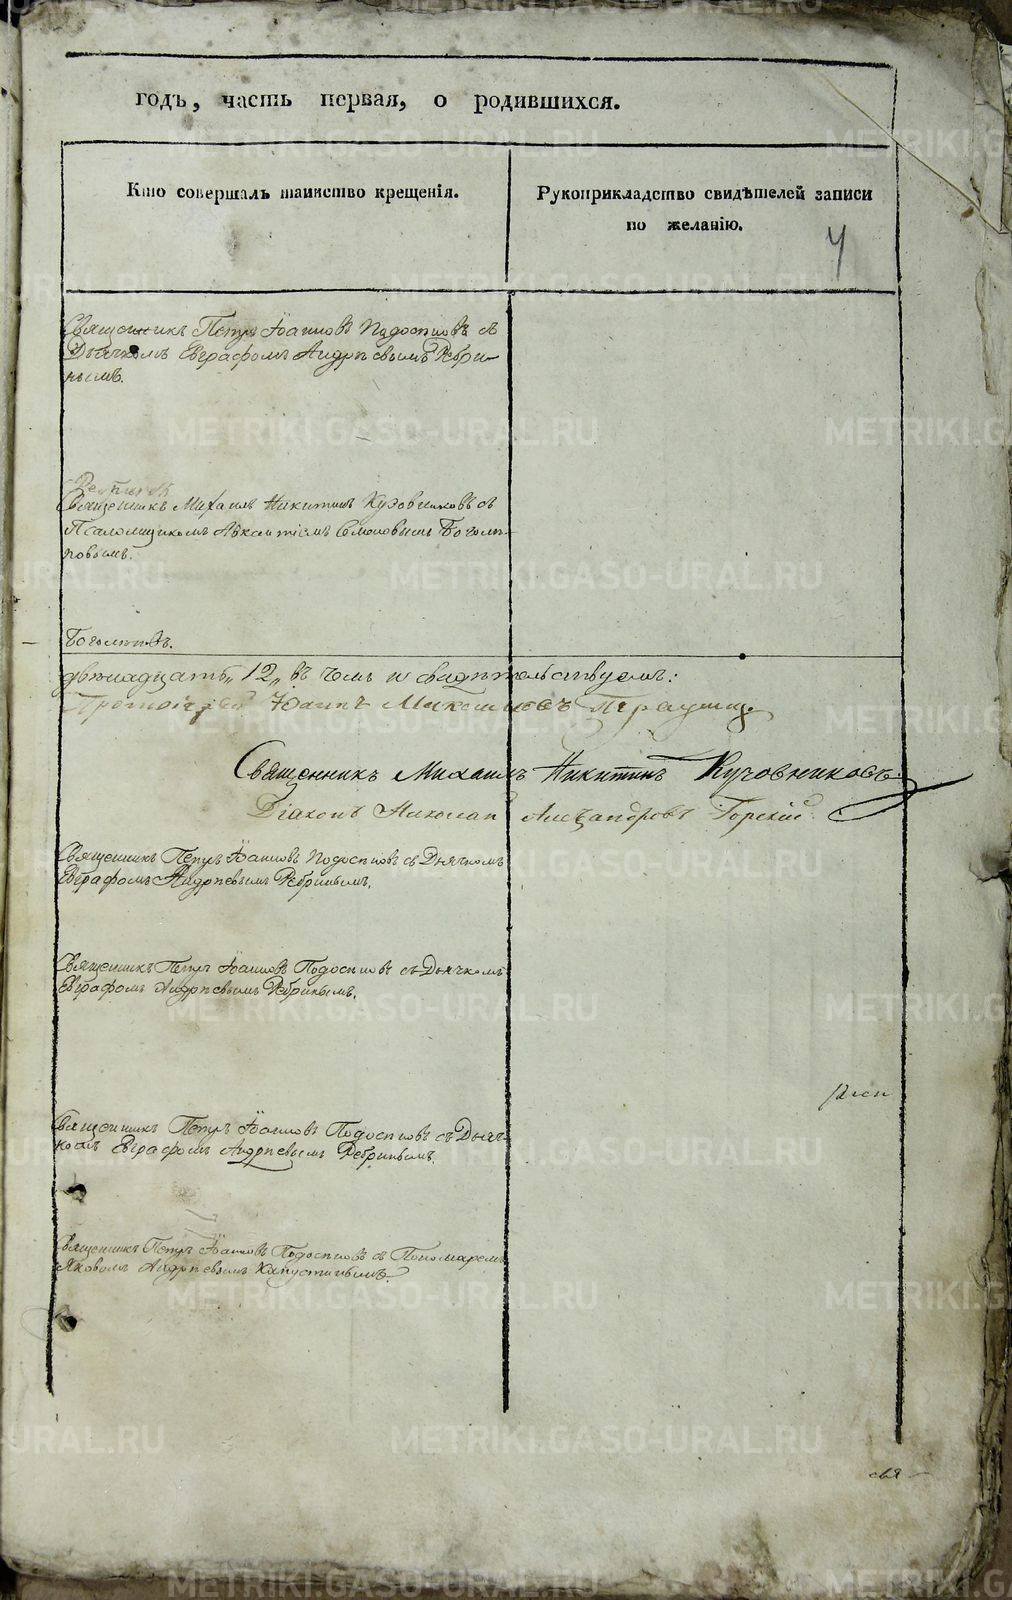 годъ, часть первая, о родившихся.
Кто совершалъ таинство крещенія.
Рукоприкладство свидѣтелей записи
по желанію.
4
Священникъ Петръ Іоанновъ Подосеновъ съ
Дьячкомъ Евграфомъ Андреевымъ Ребри-
нымъ.
Священникъ Михаилъ Никитинъ Кузовниковъ съ
Псаломщикомъ Авксентіемъ Симеоновымъ Боголѣ-
повымъ.
Боголѣповъ.
двѣнадцать „12„ въ чемъ и свидѣтельствуемъ:
Протоіерей Іоаннъ
Священникъ Михаилъ Никитинъ Кузовниковъ.
Діаконъ Николай Александровъ Горскій
Священникъ Петръ Іоанновъ Подосеновъ съ Дьячкомъ
Евграфомъ Андреевымъ Ребринымъ.
Священникъ Петръ Іоанновъ Подосеновъ съ Дьячкомъ
Евграфомъ Андреевымъ Ребринымъ.
Священникъ Петръ Іоанновъ Подосеновъ съ Дьяч-
комъ Евграфомъ Андреевымъ Ребринымъ.
Священникъ Петръ Іоанновъ Подосеновъ съ Пономаремъ
Яковомъ Андреевымъ Капустинымъ.
свя-
METRIKI.GASO-URAL.RU